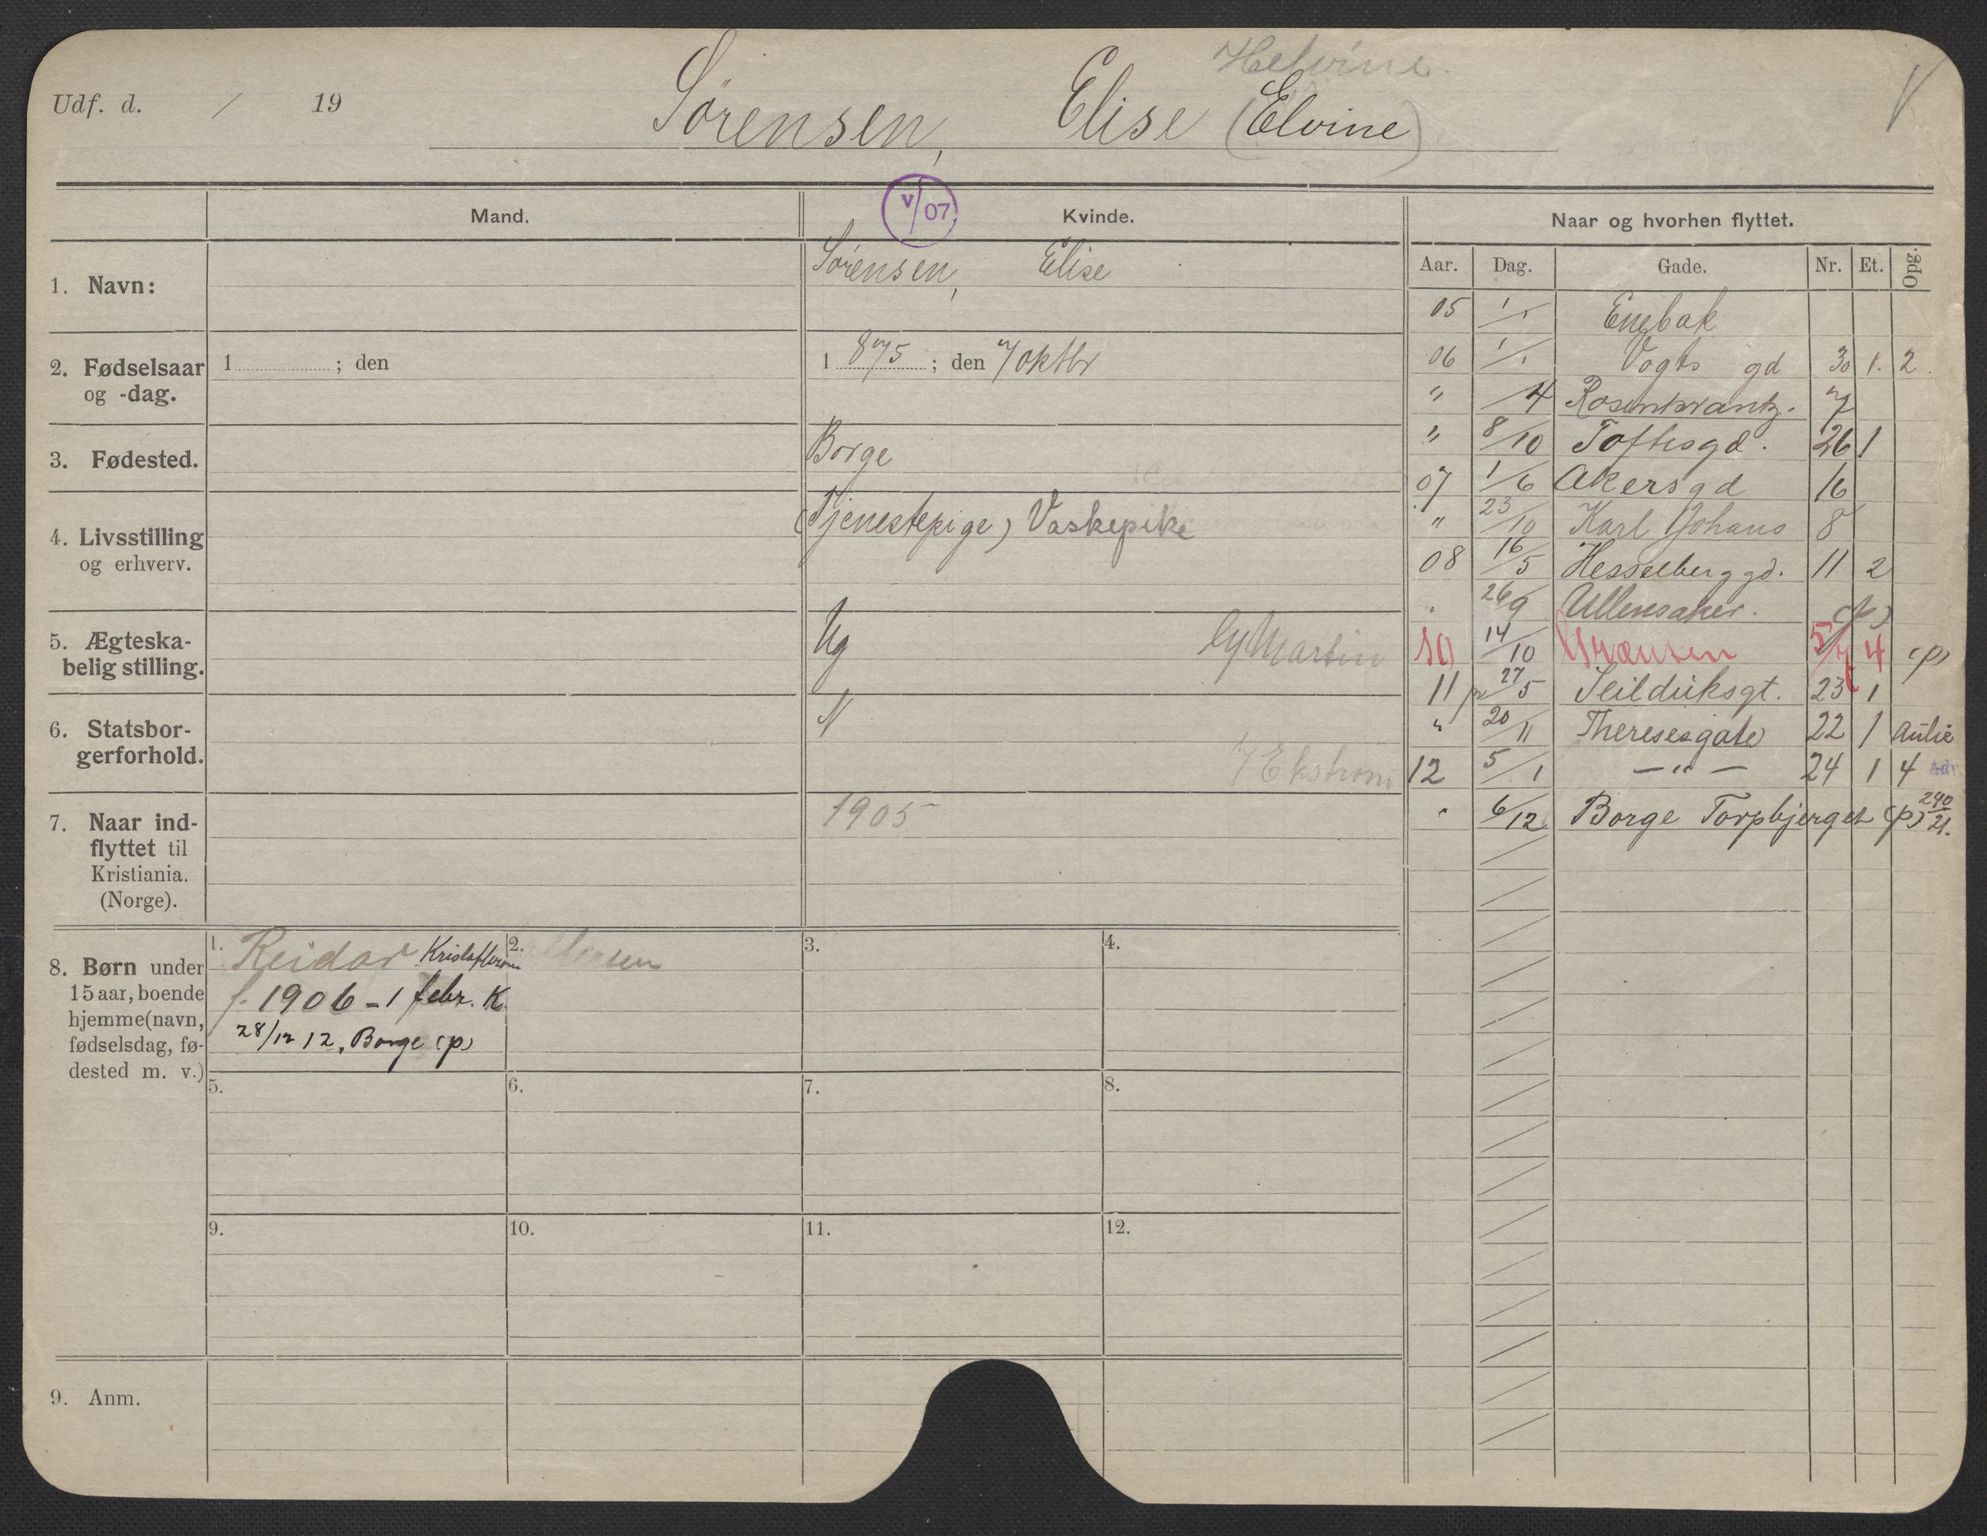 Helvine.
Udf. d. / 19 Sørensen, Elise (Elvine) V
Mand. V/07 Kvinde. Naar og hvorhen flyttet.
Aar. Dag. Gade. Nr. Et. Opg.
1. Navn: Sørensen, Elise
2. Fødselsaar og -dag. 1 ; den 1 875 ; den 7 oktbr
3. Fødested. Borge
4. Livsstilling og erhverv. (Tjenestepige) Vaskepike
5. Ægteska-
belig stilling. Ug Martin
6. Statsbor-
gerforhold. N
Ekstrom
7. Naar ind-
flyttet til
Kristiania.
(Norge). 1905
05 1/1 Enebak
06 1/1 Vogts gd 30 1. 2.
" /4 Rosenkrantz. 7
" 8/10 Toftesgd. 26 1
07 1/6 Akersgd 16
" 23/10 Karl Johans 8
08 16/5 Hesselberggd. 11 2
" 26/9 Ullensaker. (p)
10 14/10 Grænsen 5/7 4 (p)
11 27/5 Seilduksgt. 23 1
" 20/11 Theresesgate 22 1 Aulie
12 5/1 — " — 24 1 4 Adv
" 6/12 Borge Torpbjerget (p) 240/21.
8. Børn under
15 aar, boende
hjemme (navn,
fødselsdag, fø-
dested m. v.)
1. Reidar 2. 3. 4.
f. 1906 - 1 febr. K.
28/12 12, Borge (p)
5. 6. 7. 8.
9. 10. 11. 12.
9. Anm.